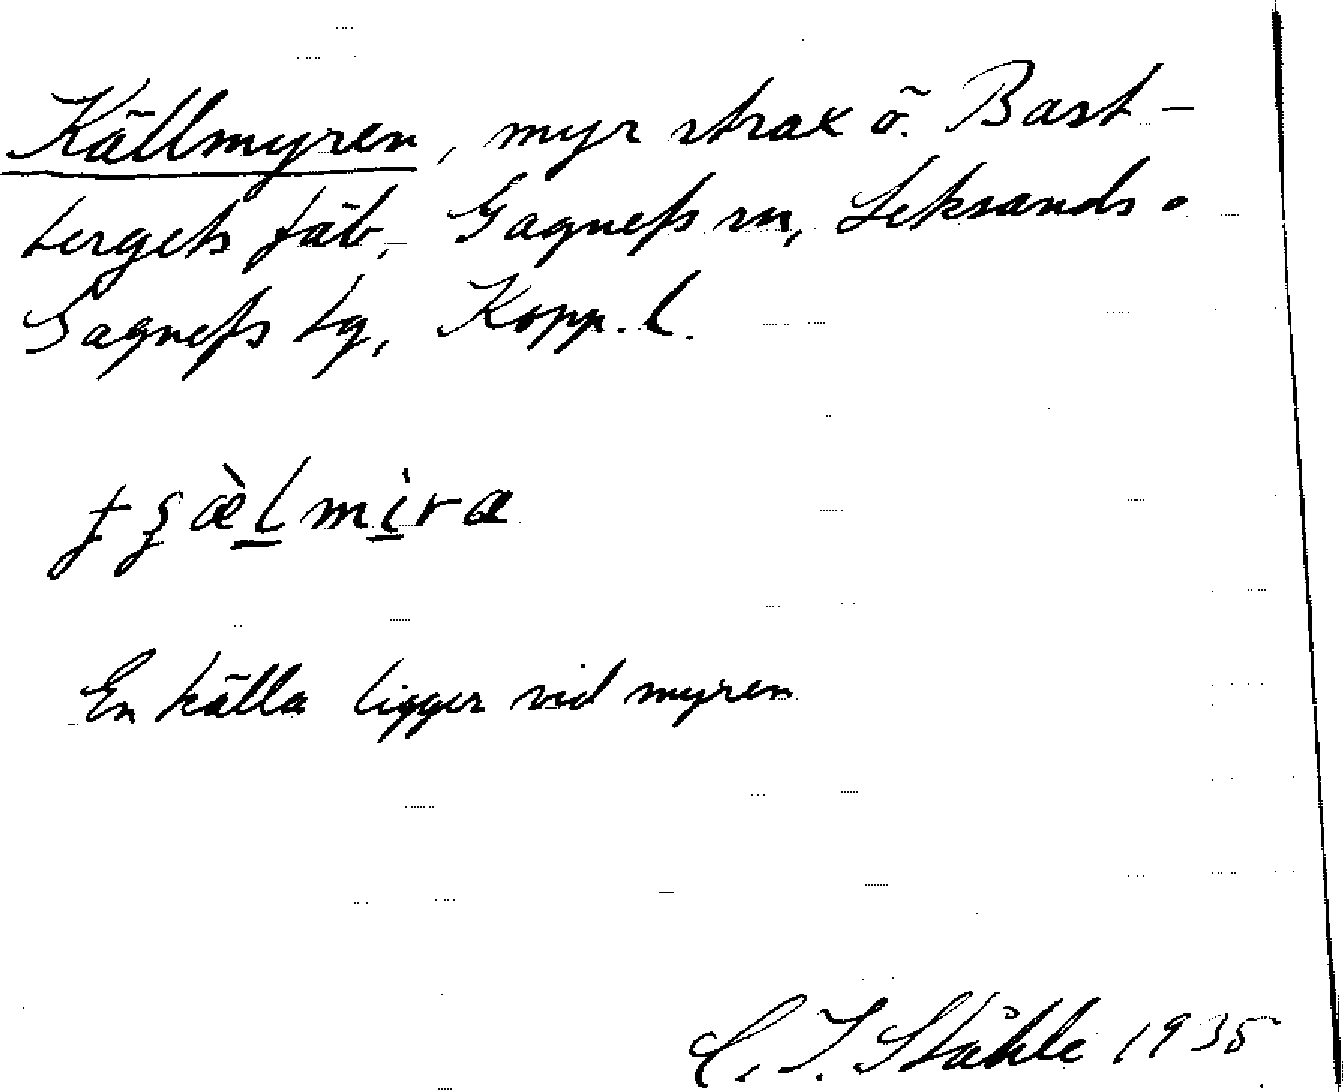 Källmyren, myr strax ö. Bast-
bergets fäb., Gagnefs sn, Leksands o
Gagnefs tg, Kopp. l.
En källa ligger vid myren
C. I. Ståhle 1935